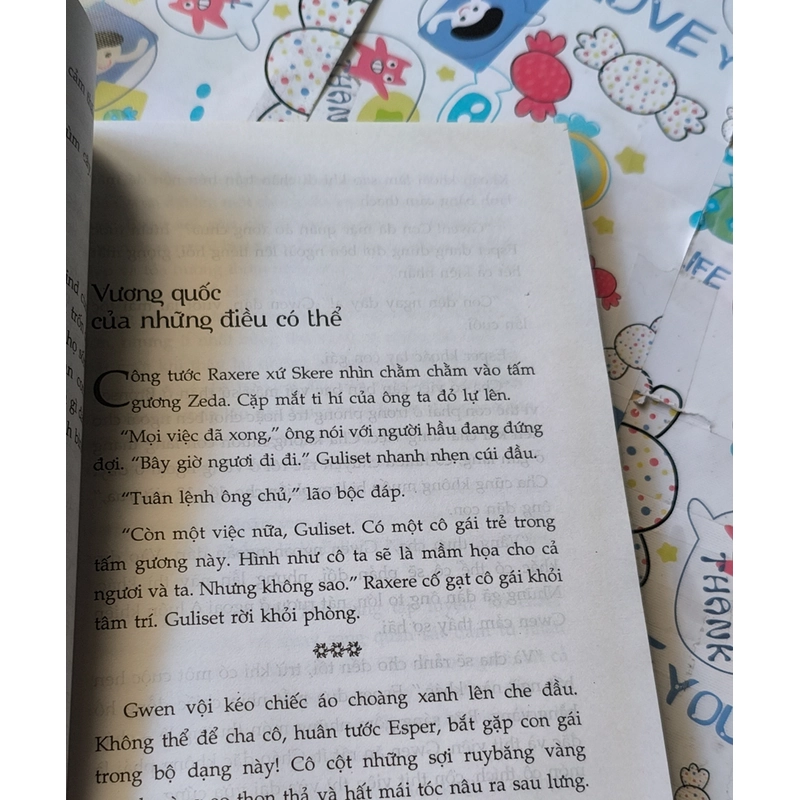 cảm
Vương quốc
của những điều có thể
Công tước Raxere xứ Skere nhìn chằm chằm vào tấm
gương Zeda. Cặp mắt ti hí của ông ta đỏ lự lên.
“Mọi việc đã xong,” ông nói với người hầu đang đứng
đợi. “Bây giờ ngươi đi đi.” Guliset nhanh nhẹn cúi đầu.
“Tuân lệnh ông chủ,” lão bộc đáp.
“Còn một việc nữa, Guliset. Có một cô gái trẻ trong
tấm gương này. Hình như cô ta sẽ là mầm họa cho cả
ngươi và ta. Nhưng không sao.” Raxere cố gạt cô gái khỏi
tâm trí. Guliset rời khỏi phòng.
Gwen vội kéo chiếc áo choàng xanh lên che đầu.
Không thể để cha cô, huân tước Esper, bắt gặp con gái
trong bộ dạng này! Cô cột những sợi ruybăng vàng
thon thả và hất mái tóc nâu ra sau lưng.
LOVE YOU
THANK
LIFE
THANK
YOU